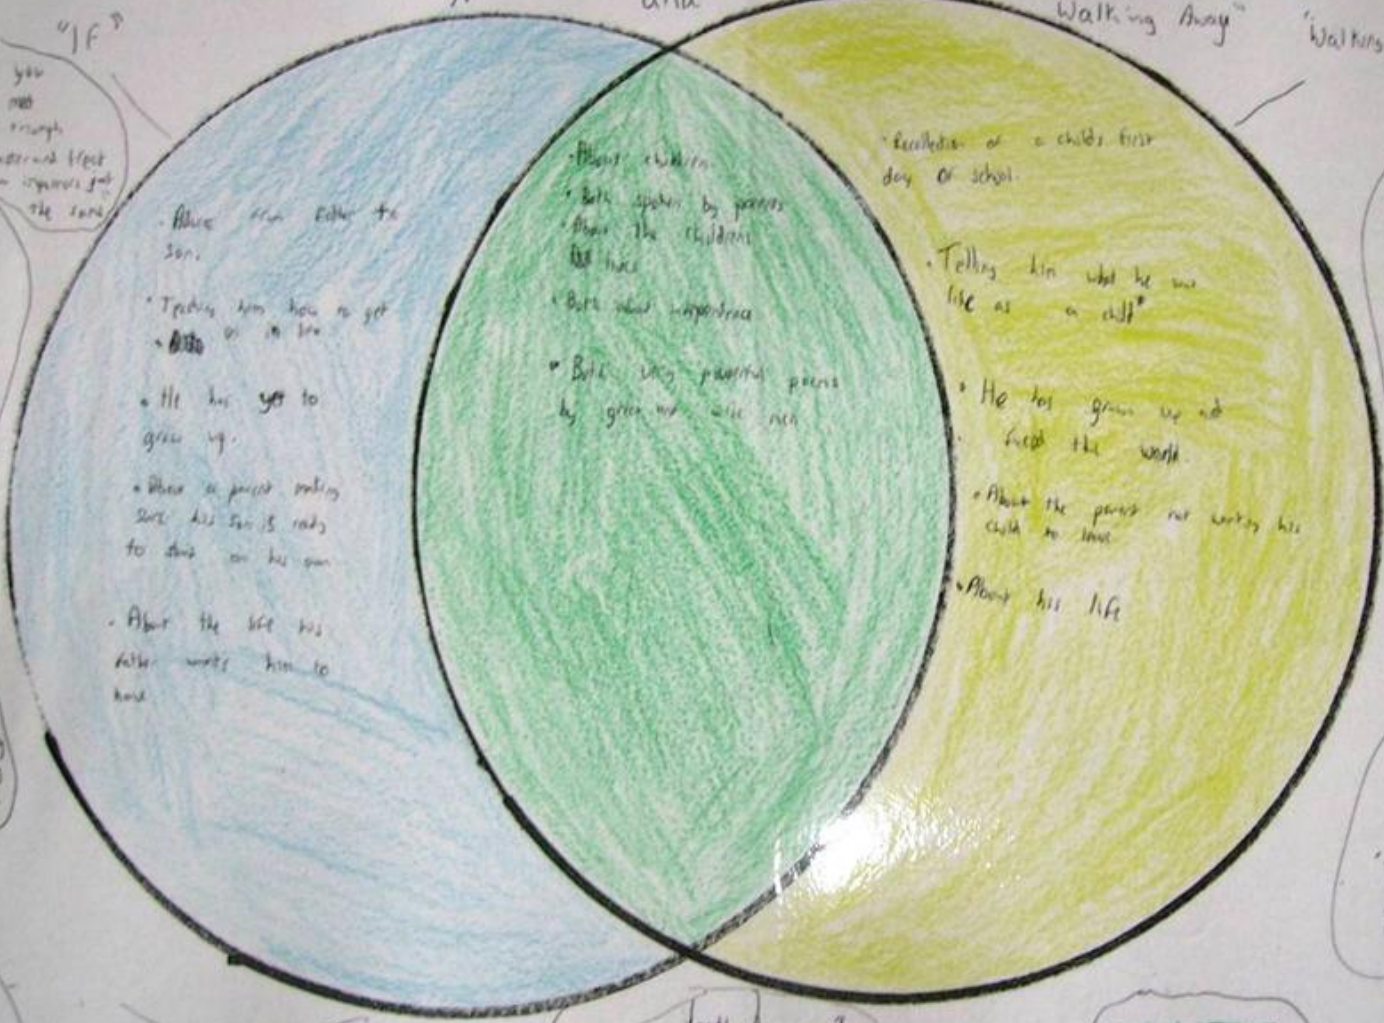 and
Walking Away"
"Walking
"If"
you
met
triumph
and treat
imposters just
the same
· Advice from father to
son.
· Teaching him how to get
on in life
· He has yet to
grow up.
· About a parent making
sure his son is ready
to start on his own
· About the life his
father wants him to
have
· About children
· Both spoken by parents
· About the childrens
lives
· Both about independence
· Both very powerful poems
by great and wise men
· Recollection of a childs first
day of school.
· Telling him what he was
like as a child"
· He has grown up and
faced the world.
· About the parent not wanting his
child to leave
· About his life